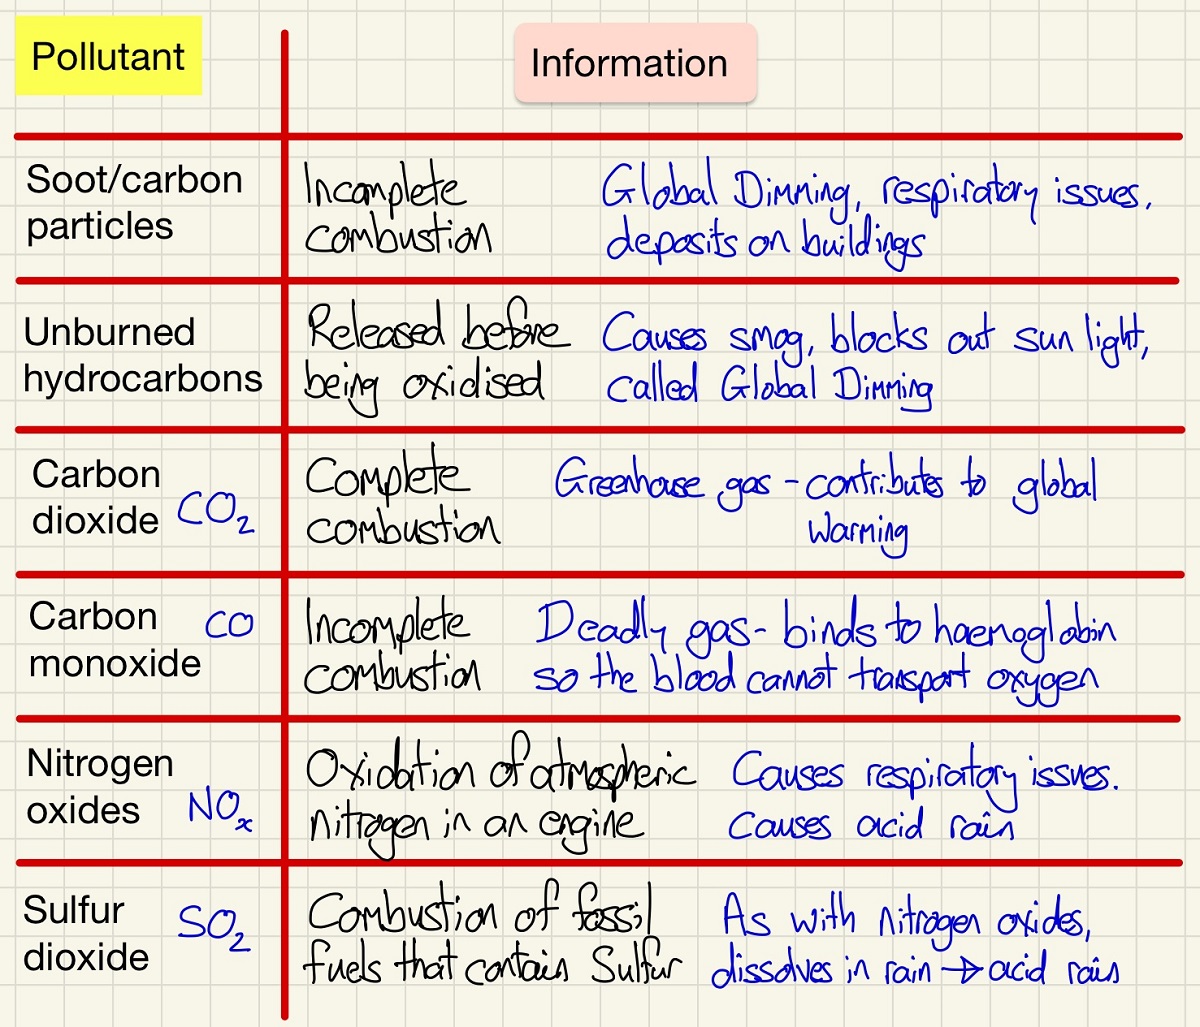 Pollutant
Information
Soot/carbon
particles
Incomplete
combustion
Global Dimming, respiratory issues,
deposits on buildings
Unburned
hydrocarbons
Released before
being oxidised
Causes smog, blocks out sun light,
called Global Dimming
Carbon
dioxide CO₂
Complete
combustion
Greenhouse gas - contributes to global
warming
Carbon CO
monoxide
Incomplete
combustion
Deadly gas - binds to haemoglobin
so the blood cannot transport oxygen
Nitrogen
oxides NOₓ
Oxidation of atmospheric
nitrogen in an engine
Causes respiratory issues.
Causes acid rain
Sulfur SO₂
dioxide
Combustion of fossil
fuels that contain Sulfur
As with nitrogen oxides,
dissolves in rain → acid rain